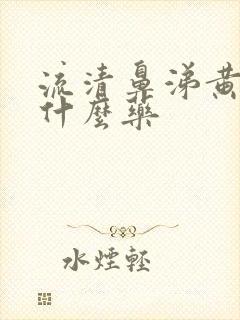 流清鼻涕黄
什麼藥
水煙輕